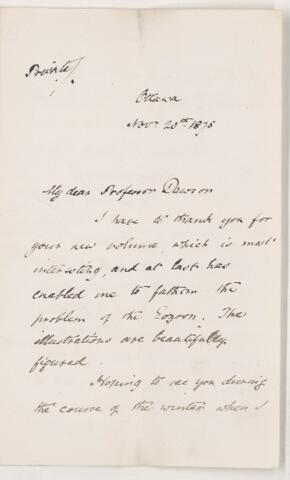 Private
Ottawa
Novr. 20th. 1875
My dear Professor Dawson
I have to thank you for
your new volume, which is most
interesting, and at last has
enabled me to fathom the
problem of the Eozoon. The
illustrations are beautifully
figured.
Hoping to see you during
the course of the winter when I